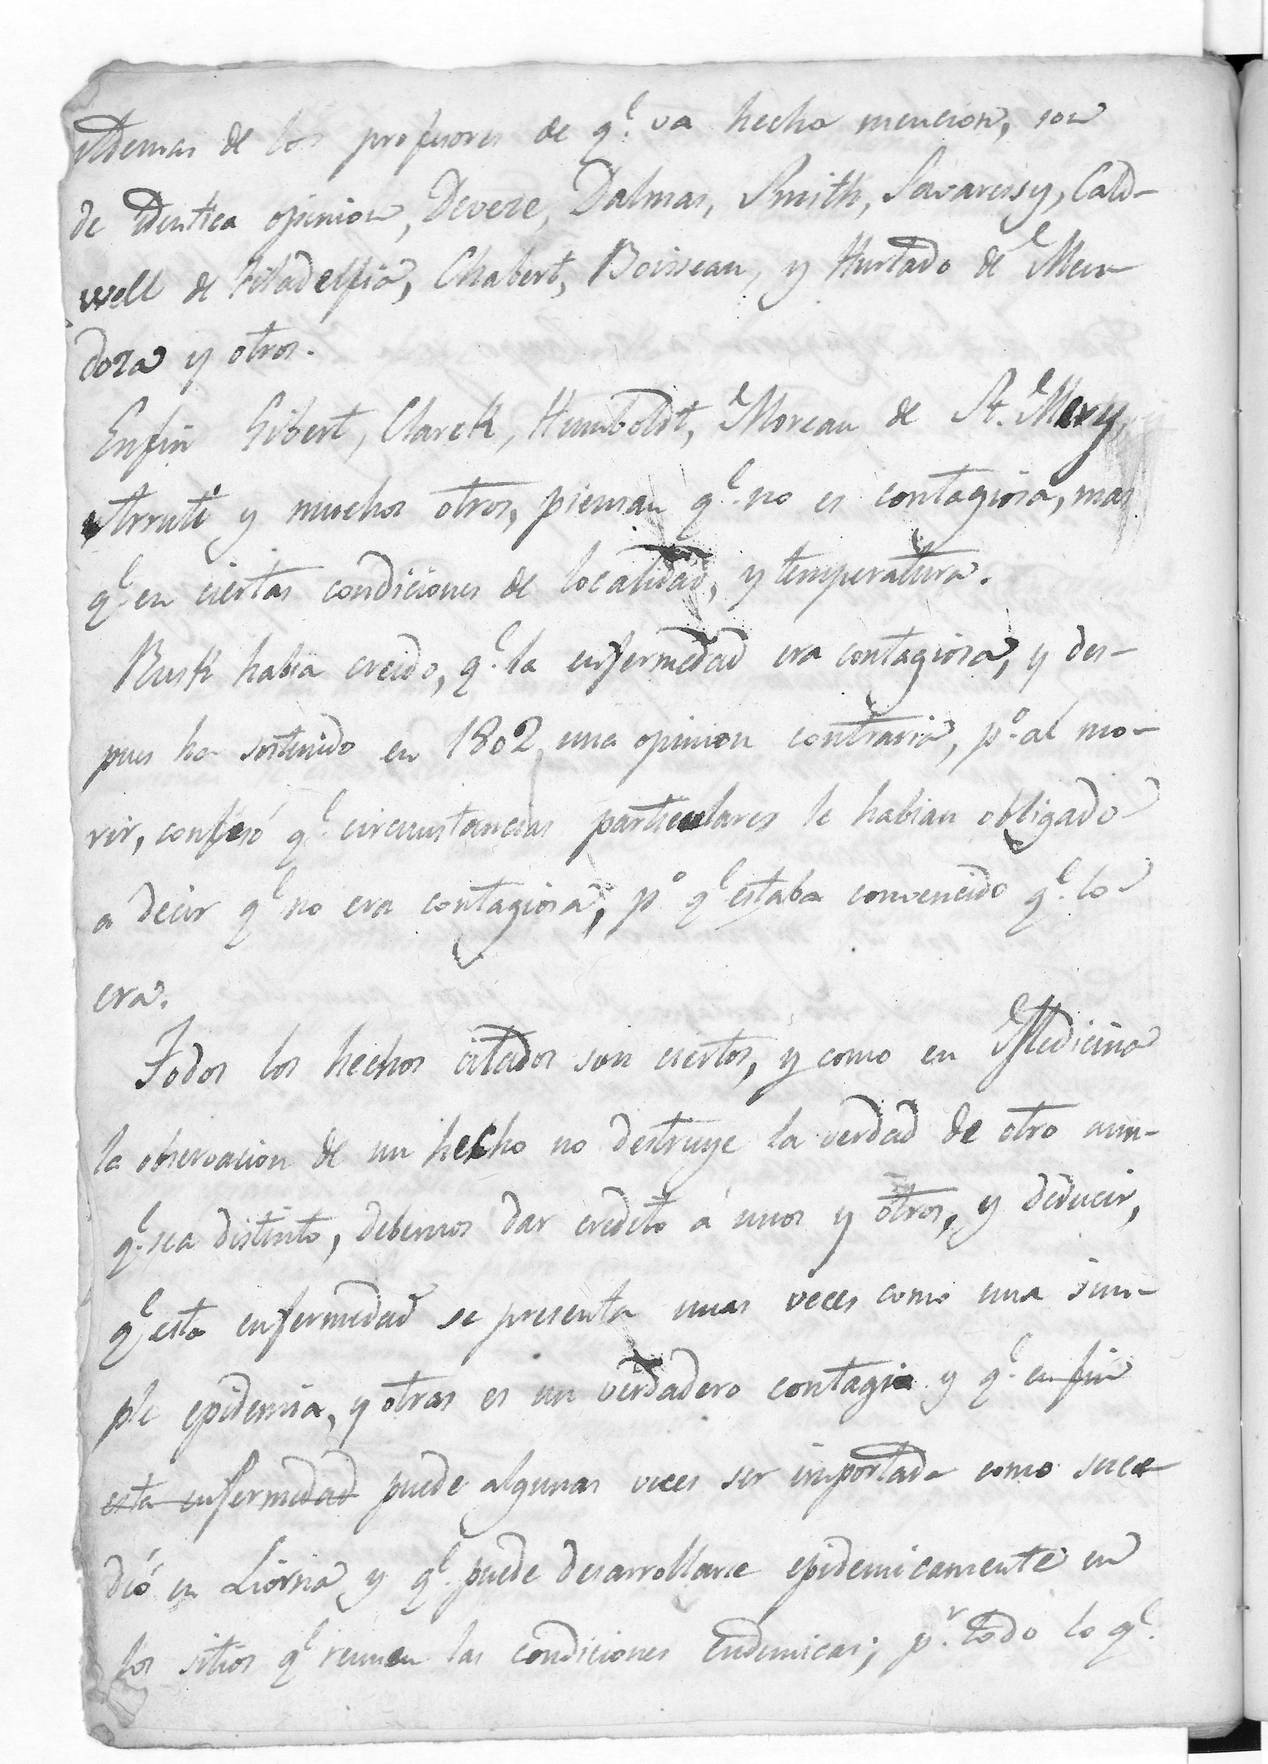 Ademas de los profesores de q.e va hecha mencion, son
de identica opinion, Deveze, Dalmas, Smith, Savaressy, Cald-
well de Filadelfia, Chabert, Boisseau, y Hurtado de Men
doza y otros.
Enfin Gibert, Clarck, Humboldt, Moreau de St. Mery,
Arruti y muchos otros, piensan q.e no es contagiosa, mas
q.e en ciertas condiciones de localidad, y temperatura.
Rusk habia creido, q.e la enfermedad era contagiosa, y des-
pues ha sostenido en 1802 una opinion contraria, p.o al mo-
rir, confesó q.e circunstancias particulares le habian obligado
a decir q.e no era contagiosa, p.o q.e estaba convencido q.e lo
era.
Todos los hechos citados son ciertos, y como en Medicina
la observacion de un hecho no destruye la verdad de otro aun-
q.e sea distinto, debemos dar credito á unos y otros, y deducir,
q.e esta enfermedad se presenta unas veces como una sim-
ple epidemia, y otras es un verdadero contagio y q.e en fin
esta enfermedad puede algunas veces ser importada como suce
dió en Liorna y q.e puede desarrollarse epidemicamente en
los sitios q.e reunen las condiciones endemicas; p.r todo lo q.e